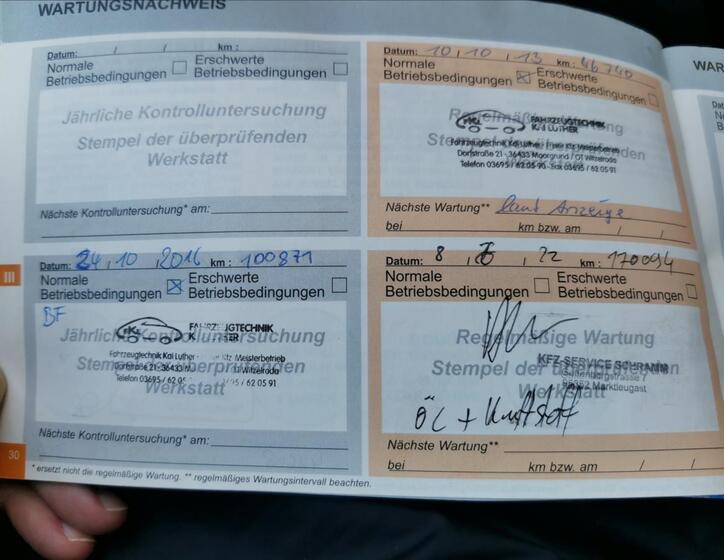 WARTUNGSNACHWEIS
Datum: / / km :
Normale Betriebsbedingungen
Erschwerte Betriebsbedingungen
Jährliche Kontrolluntersuchung
Stempel der überprüfenden
Werkstatt
Nächste Kontrolluntersuchung* am:
Datum: 10 , 10 , 13 km : 46 740
Normale Betriebsbedingungen
Erschwerte Betriebsbedingungen
Regelmäßige Wartung
Stempel der überprüfenden
Werkstatt
FAHRZEUGTECHNIK
KAI LUTHER
Fahrzeugtechnik Kai Luther · Freier Kfz Meisterbetrieb
Dorfstraße 21 · 36433 Moorgrund / OT Witzelroda
Telefon 03695 / 62 05 90 · Fax 03695 / 62 05 91
Nächste Wartung** Laut Anzeige
bei km bzw. am / /
III
Datum: 24 , 10 , 2016 km : 100871
Normale Betriebsbedingungen
Erschwerte Betriebsbedingungen
BF
Jährliche Kontrolluntersuchung
Stempel der überprüfenden
Werkstatt
FAHRZEUGTECHNIK
LUTHER
Fahrzeugtechnik Kai Luther Kfz Meisterbetrieb
Dorfstraße 21 · 36433 Witzelroda
Telefon 03695 / 62 05 / 62 05 91
Nächste Kontrolluntersuchung* am:
Datum: 8 , , 22 km : 170094
Normale Betriebsbedingungen
Erschwerte Betriebsbedingungen
Regelmäßige Wartung
Stempel der überprüfenden
Werkstatt
KFZ-SERVICE SCHRAMM
Marktleugast
ÖL +
Nächste Wartung**
bei km bzw. am / /
30
* ersetzt nicht die regelmäßige Wartung. ** regelmäßiges Wartungsintervall beachten.
WAR